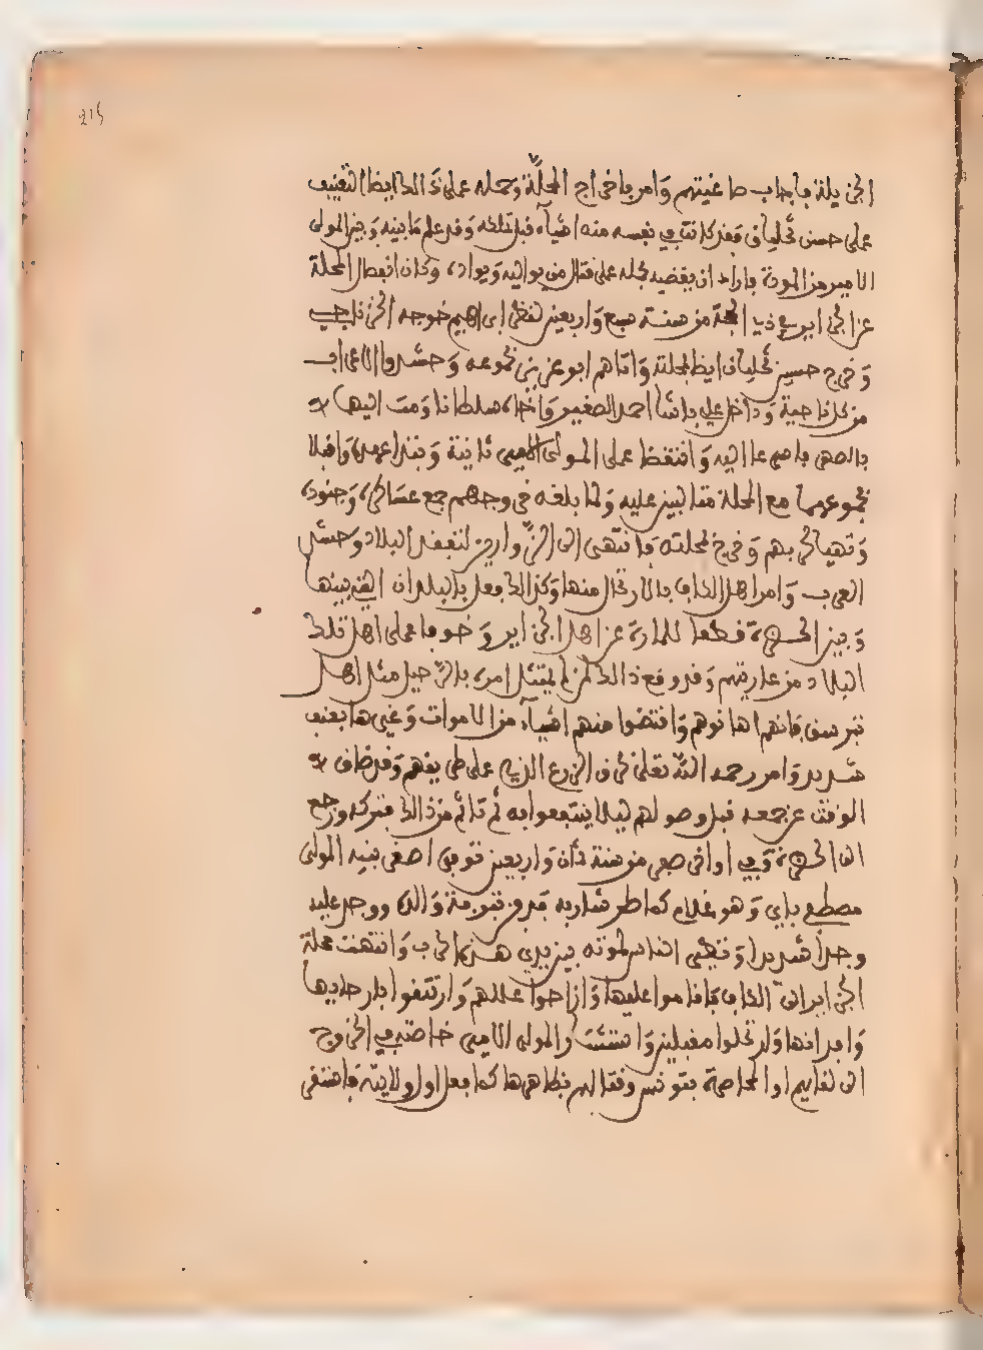 215
الجزيلة فاجاب طاغيتهم وامر باخراج المحلّة وحمله على ذالك ايضا التعنيف
على حسن فقد كانت في نفسه منه اشيآء قبل تلك وقد علم ما بينه وبين المولى
الامير من المودة فاراد ان يغضبه على قتال من يواليه ويواده وكان انفصال المحلة
عن الجزاير في ذي الحجة من سنة سبع واربعين لنظر ابراهيم خوجه الخزناجي
وخرج حسين ايضا بمحلته واتاهم ابو عزيز بجموعه وحشدوا الاعراب
من كل ناحية وداخل علي باشا احمد الصغير سلطانا ومت اليها
بالصهر فاصرعا اليه وانتقضا على المولى الامير ثانية ونبذا عهده واقبلا
بجموعهما مع المحلة متالبين عليه ولما بلغه خروجهم جمع عساكره وجنوده
وتهيا لحربهم وخرج بمحلته فانتهى الى الزوارين لتفقد البلاد وحشد
العرب وامر اهل الكاف بالارتحال منها وكذالك فعل بالبلدان التي بينها
وبين الحضرة قطعا للمادة عن اهل الجزاير وخوفا على اهل تلك
البلاد من عاديتهم وقد وقع ذالك لمن لم يمتثل امره بالرحيل مثل اهل
تبرسق فانهم اهانوهم واقتضوا منهم اشيآء من الاموات وغيرها بعنف
شديد وامر رحمه الله تعلى بحرق الزرع الذي على طريقهم وقد ضاق
الوقت عن جمعه قبل وصولهم ليلا ينتفعوا به ثم تاثم من ذالك فتركه ورجع
الى الحضرة وفي اواخر صفر من سنة ثمان واربعين توفي اصغر بنيه المولى
مصطفى باي وهو غلام كما طر شاربه فدفن بتربة والده ووجد عليه
وجدا شديدا وتطير الناس لموته بين يدي هذه الحرب وانتهت محلة
الجزاير الى الكاف فاقاموا عليها وازاحوا عللهم وارتفقوا بارحايها
وافرانها وارتحلوا مقبلين واستشار المولى الامير خاصته في الخروج
الى لقايهم او المحاصرة بتونس وقتالهم بظاهرها كما فعل اول ولايته فاستقر